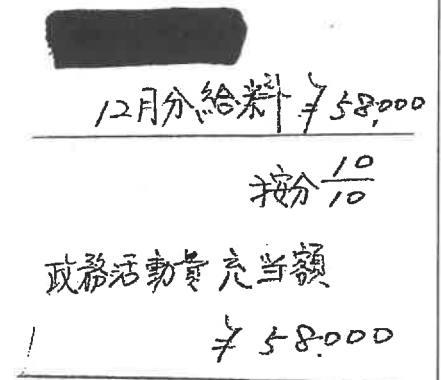 12月分給料 ¥58,000
按分 10/10
政務活動費充当額
¥58,000